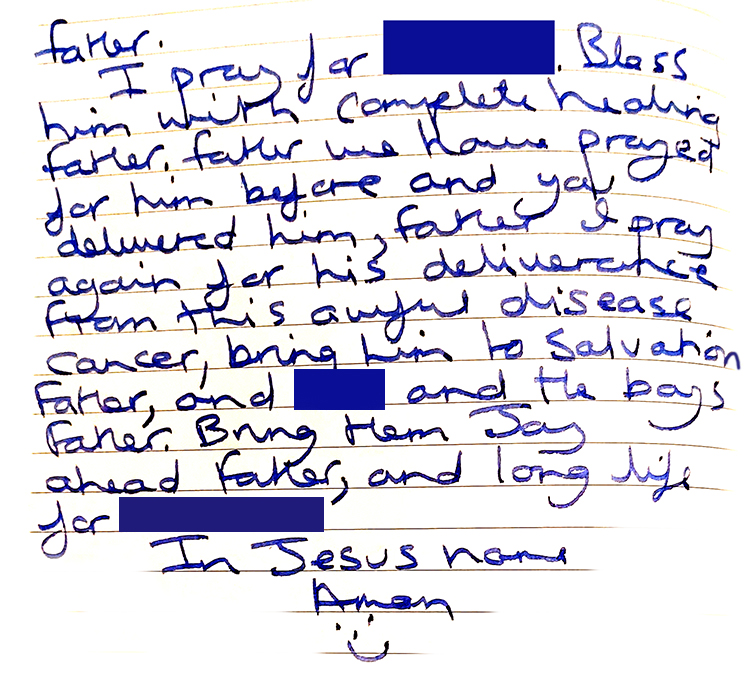 father.
I pray for . Bless
him with complete healing
father. father we have prayed
for him before and you
delivered him, father I pray
again for his deliverance
from this awful disease
cancer, bring him to salvation
Father, and and the boys
father. Bring them Joy
ahead father, and long life
for
In Jesus name
Amen